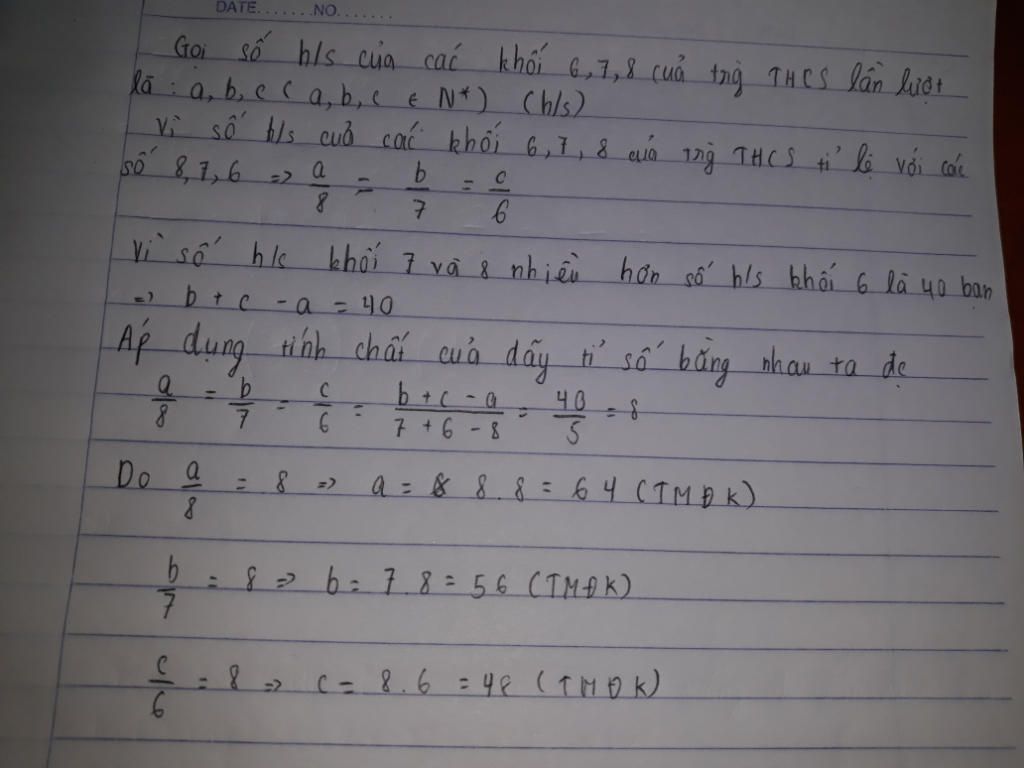 DATE.......NO.......
Gọi số h/s của các khối 6,7,8 của trg THCS lần lượt
là : a, b, c ( a, b, c ∈ N*) (h/s)
Vì số h/s cuả các khối 6,7,8 của trg THCS tỉ lệ với các
số 8,7,6 => a/8 = b/7 = c/6
Vì số h/s khối 7 và 8 nhiều hơn số h/s khối 6 là 40 bạn
=> b + c - a = 40
Áp dụng tính chất của dãy tỉ số bằng nhau ta đc
a/8 = b/7 = c/6 = (b + c - a)/(7 + 6 - 8) = 40/5 = 8
Do a/8 = 8 => a = 8 . 8 = 64 (TMĐK)
b/7 = 8 => b = 7 . 8 = 56 (TMĐK)
c/6 = 8 => c = 8 . 6 = 48 (TMĐK)